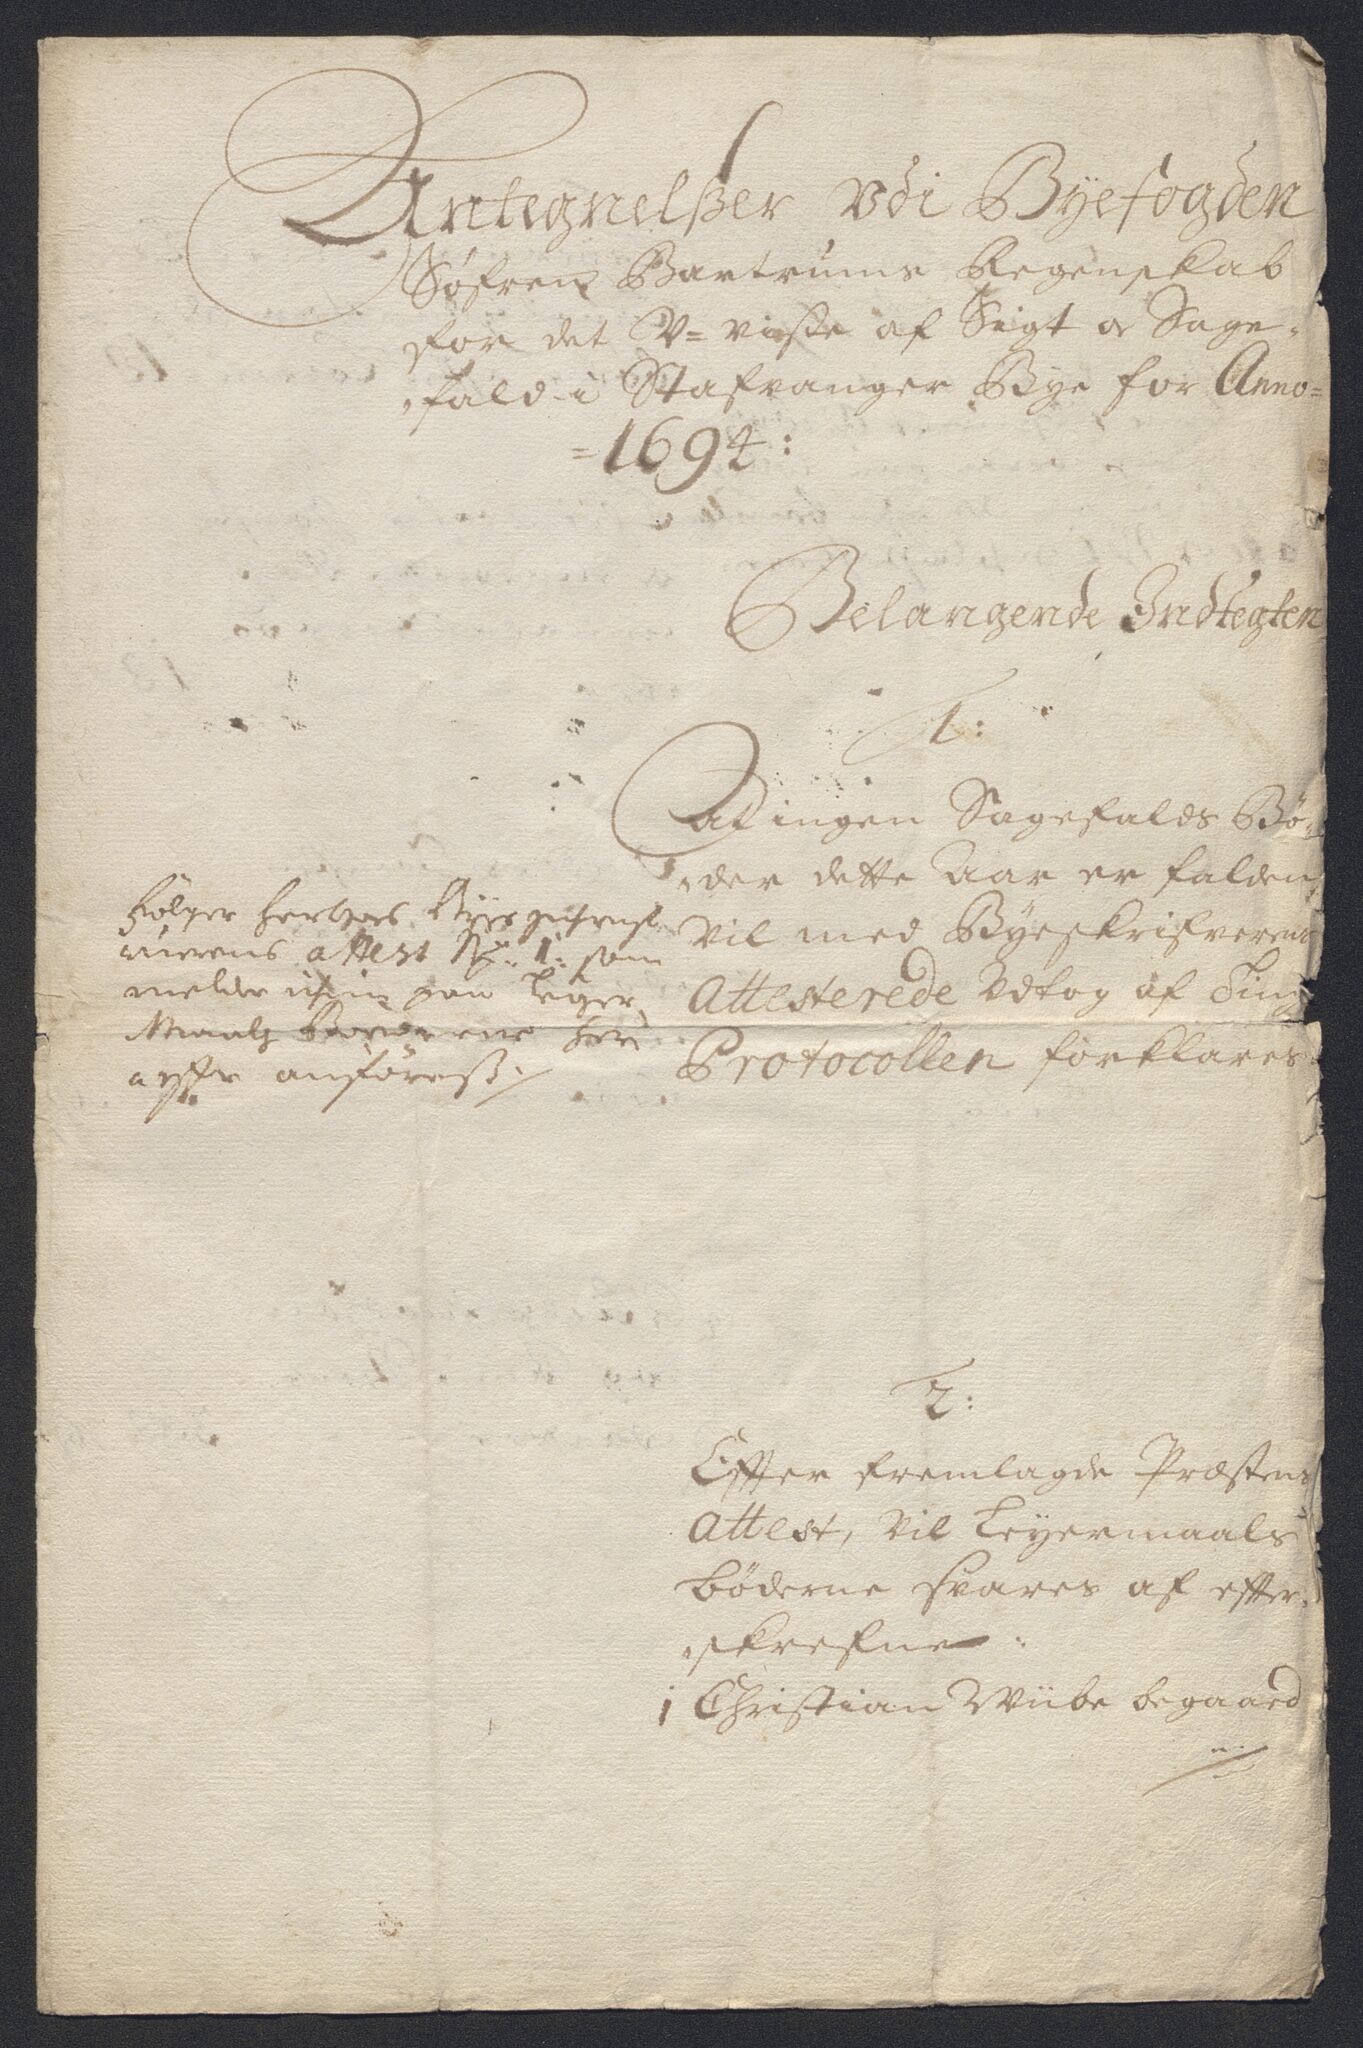 Antegnelßer Vdi Byefogden
Søfren Bartrums Regenskab
for det V=visße af Sigt oc Sage-
fald i Stafvanger Bye for Anno
=1694:
Belangende Indtegten
1:
At ingen Sagefalds Bø-
der dette Aar er falden,
Vil med Byeskrifverens
Attesterede Vdtog af Ting
Protocollen forklares
Følger herhos Byes
attest No. 1: som
melder
her
efter anføreß.
2:
Effter fremlagde Præstens
Attest, Vil Leyermaals
bøderne svares af effter-
skrefne:
1 Christian Wiibe begaaed